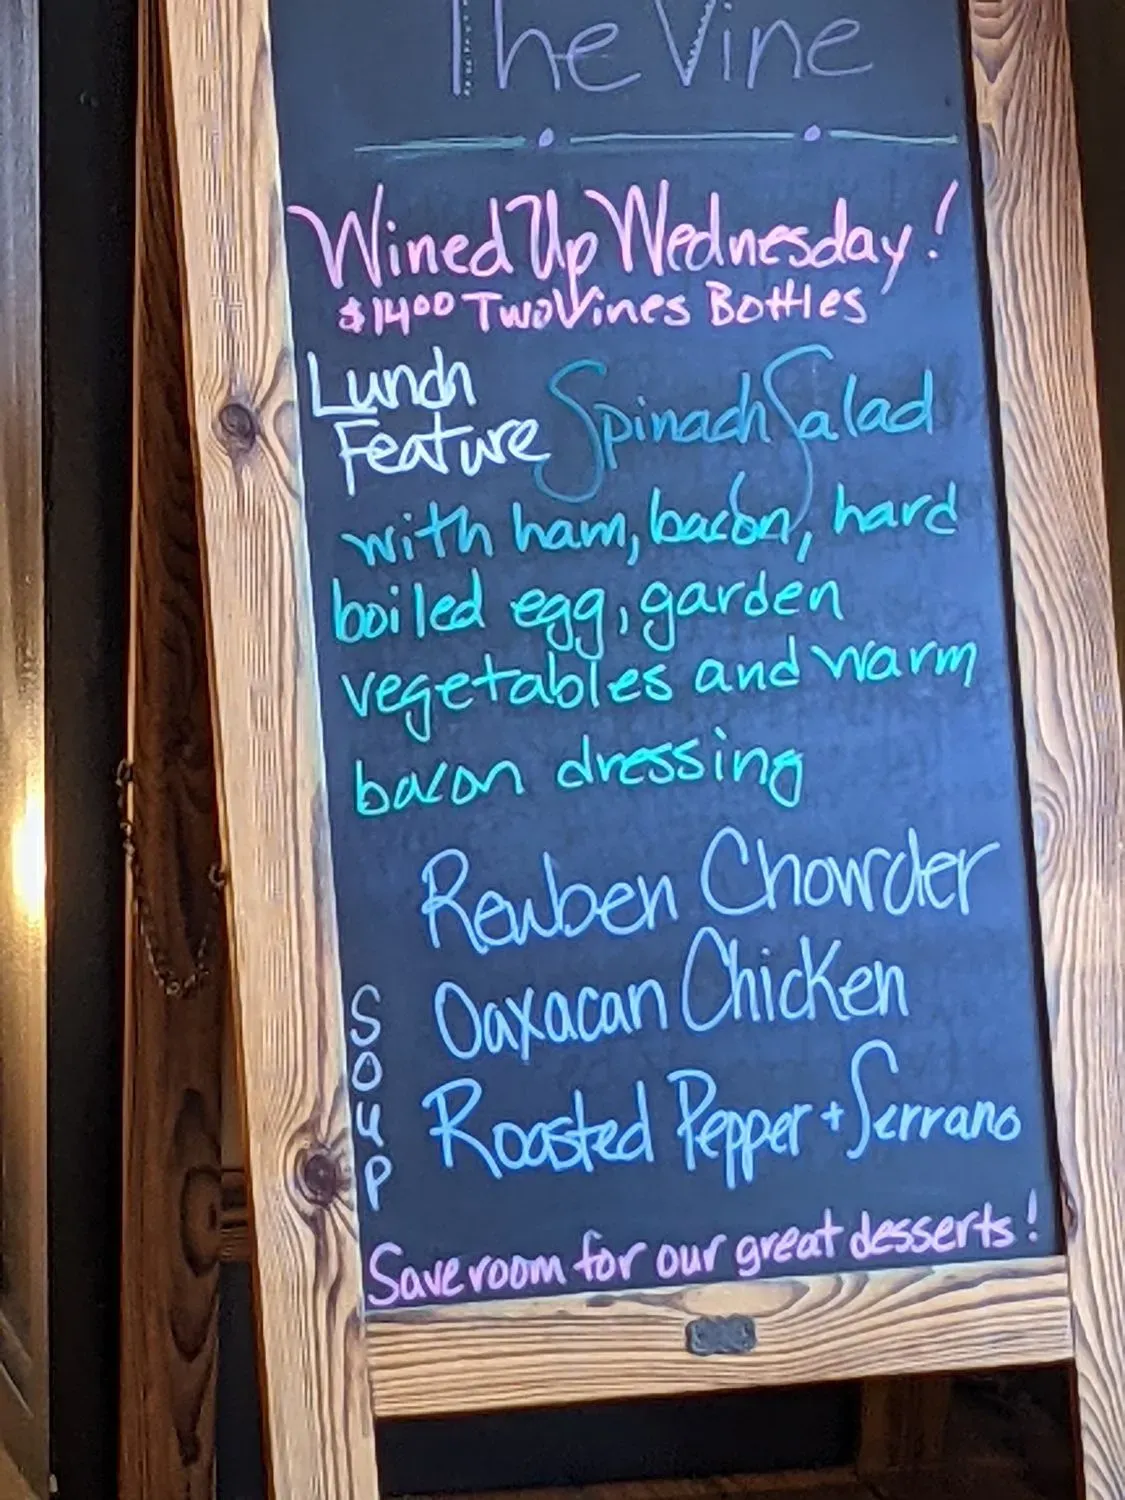 The Vine
Wined Up Wednesday!
$1400 Two Vines Bottles
Lunch
Feature Spinach Salad
with ham, bacon, hard
boiled egg, garden
vegetables and warm
bacon dressing
SOUP
Reuben Chowder
Oaxacan Chicken
Roasted Pepper + Serrano
Save room for our great desserts!